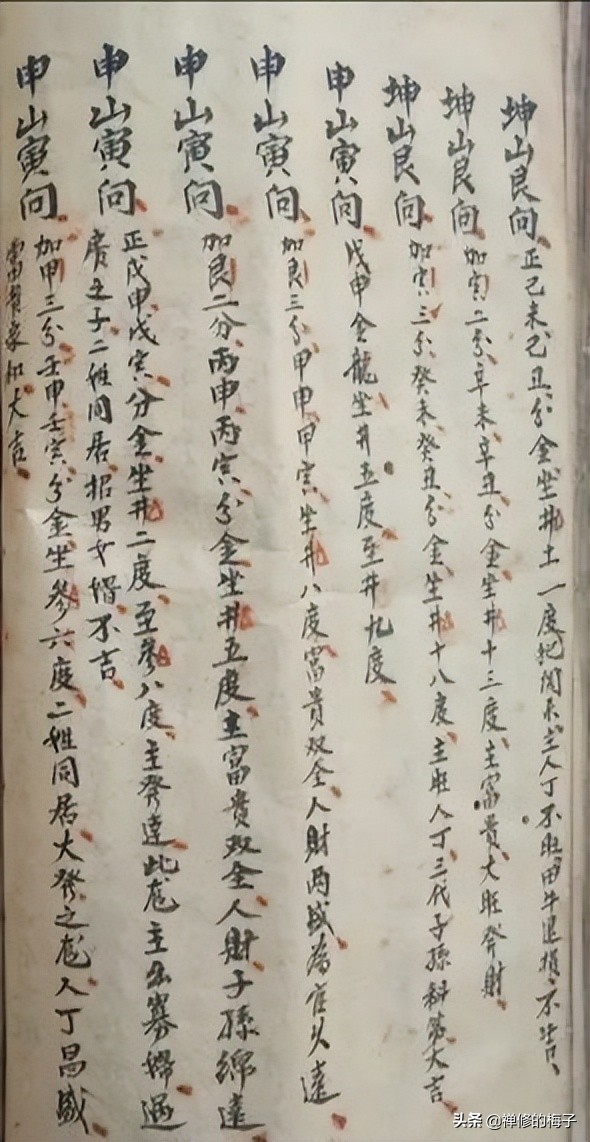 坤山艮向正己未己丑分金坐井土一度犯関煞主人丁不旺田牛退損不吉
坤山艮向加寅二分辛未辛丑分金坐井十三度主富貴大旺發財
坤山艮向加寅三分癸未癸丑分金坐井十八度主旺人丁三代子孫科第大吉
申山寅向戊申金龍坐井五度至井九度
申山寅向加艮三分甲申甲寅坐井八度富貴双全人財两盛為官久遠
申山寅向加艮二分丙申丙寅分金坐井五度主富貴双全人財子孫綿遠
申山寅向正戊申戊寅分金坐井二度至參八度主發達此龙主出寡婦過
房之子二姓同居招男女婿不吉
申山寅向加甲三分壬申壬寅分金坐參六度二姓同居大發之龙人丁昌盛
富貴家和大吉
头条 @禅修的梅子